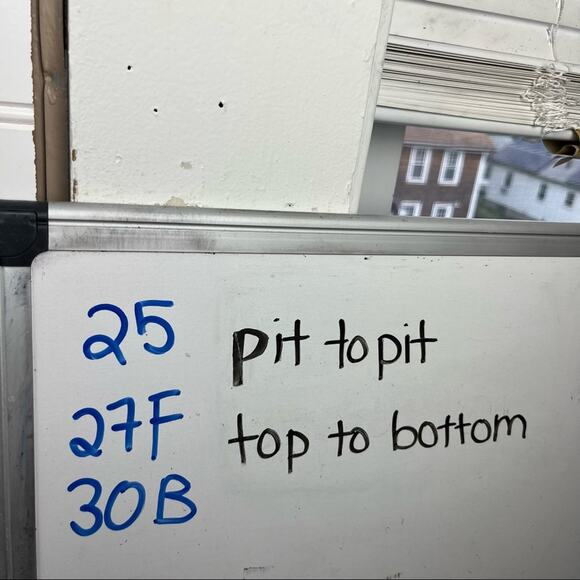 25 pit to pit
27F top to bottom
30B